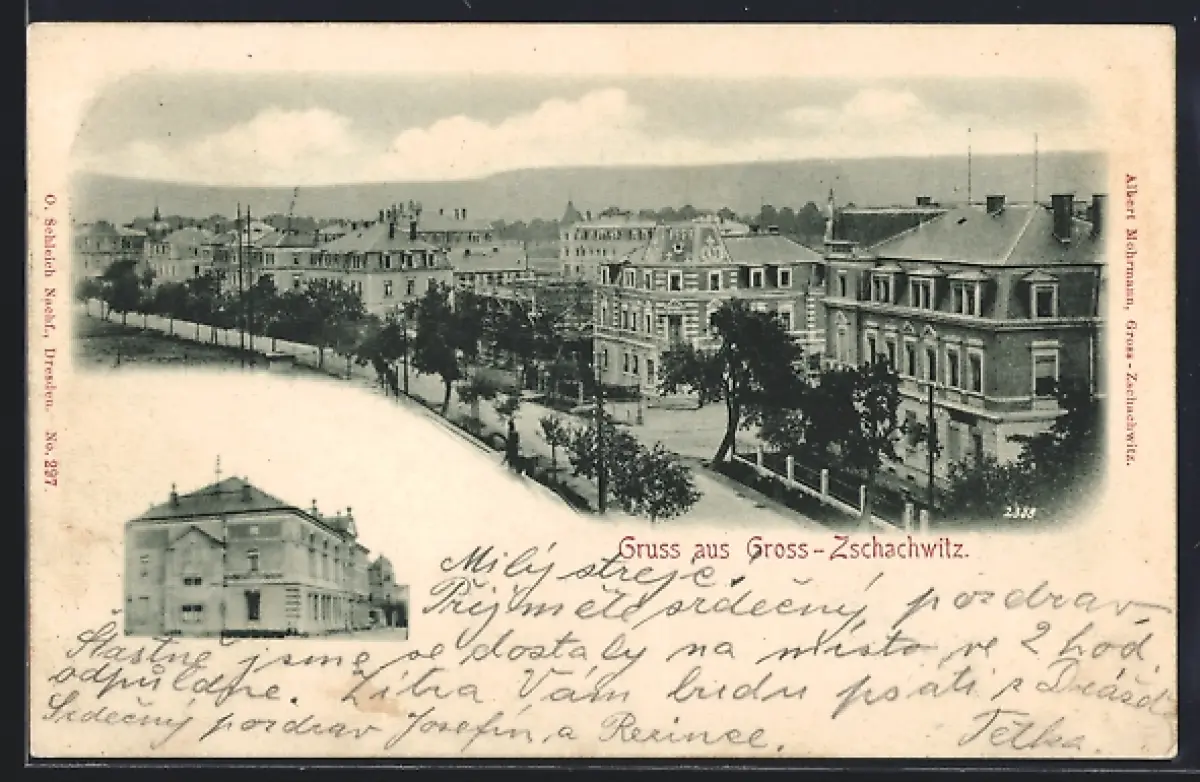 O. Schleich Nachf., Dresden. No. 297.
Albert Mohrmann, Gross-Zschachwitz.
2388
Gruss aus Gross-Zschachwitz.
Milý strejč.
Přijměte srdečný pozdrav
Šťastně jsme se dostaly na místo ve 2 hod.
odpůldne. Zitra Vám budu psáti z Drážď
Srdečný pozdrav Josefín, a
Tetka.